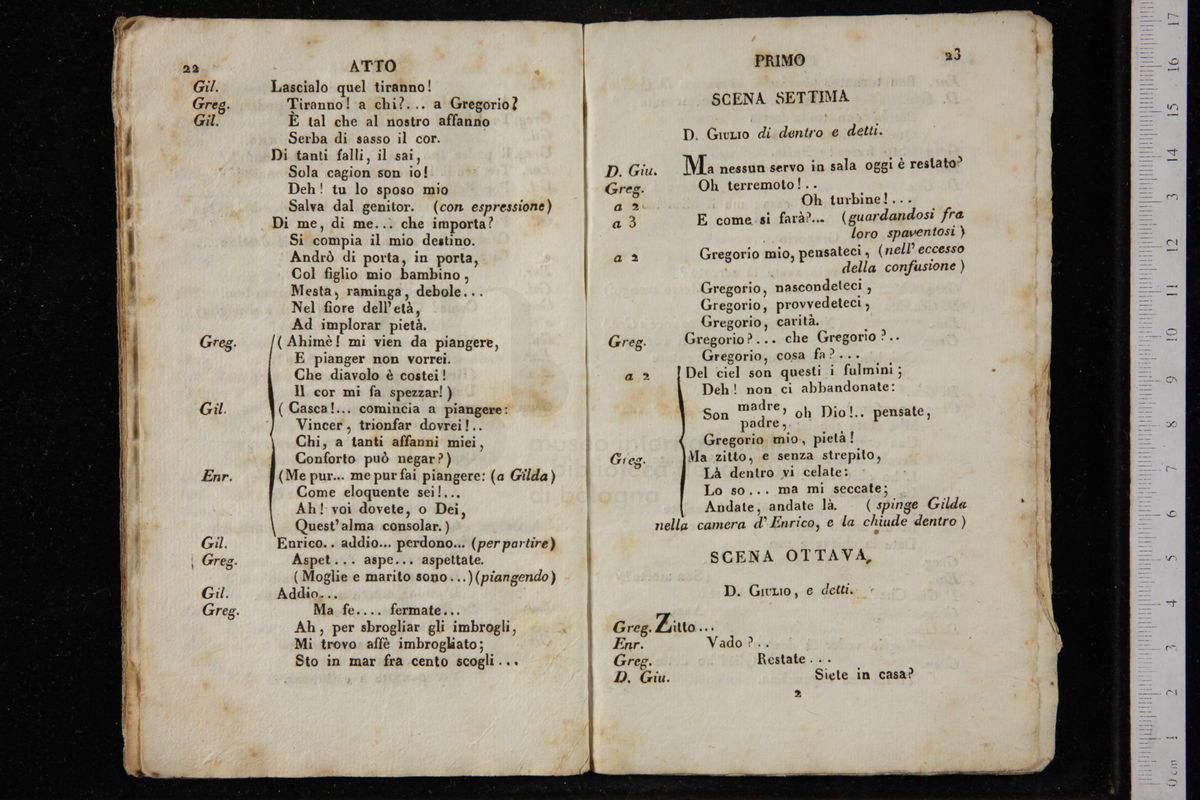 22
ATTO
Gil. Lascialo quel tiranno!
Greg. Tiranno! a chi?... a Gregorio?
Gil. È tal che al nostro affanno
Serba di sasso il cor.
Di tanti falli, il sai,
Sola cagion son io!
Deh! tu lo sposo mio
Salva dal genitor. (con espressione)
Di me, di me... che importa?
Si compia il mio destino.
Andrò di porta, in porta,
Col figlio mio bambino,
Mesta, raminga, debole...
Nel fiore dell'età,
Ad implorar pietà.
Greg. (Ahimè! mi vien da piangere,
E pianger non vorrei.
Che diavolo è costei!
Il cor mi fa spezzar!)
Gil. (Casca!... comincia a piangere:
Vincer, trionfar dovrei!..
Chi, a tanti affanni miei,
Conforto può negar?)
Enr. (Me pur... me pur fai piangere: (a Gilda)
Come eloquente sei!...
Ah! voi dovete, o Dei,
Quest'alma consolar.)
Gil. Enrico.. addio... perdono... (per partire)
Greg. Aspet... aspe... aspettate.
(Moglie e marito sono...) (piangendo)
Gil. Addio...
Greg. Ma fe.... fermate...
Ah, per sbrogliar gli imbrogli,
Mi trovo affè imbrogliato;
Sto in mar fra cento scogli...
PRIMO
23
SCENA SETTIMA
D. GIULIO di dentro e detti.
D. Giu. Ma nessun servo in sala oggi è restato?
Greg. Oh terremoto!..
a 2 Oh turbine!...
a 3 E come si farà?... (guardandosi fra
loro spaventosi)
a 2 Gregorio mio, pensateci, (nell'eccesso
della confusione)
Gregorio, nascondeteci,
Gregorio, provvedeteci,
Gregorio, carità.
Greg. Gregorio?... che Gregorio?..
Gregorio, cosa fa?...
a 2 Del ciel son questi i fulmini;
Deh! non ci abbandonate:
Son madre, oh Dio!.. pensate,
padre,
Gregorio mio, pietà!
Greg. Ma zitto, e senza strepito,
Là dentro vi celate:
Lo so... ma mi seccate;
Andate, andate là. (spinge Gilda
nella camera d'Enrico, e la chiude dentro)
SCENA OTTAVA,
D. GIULIO, e detti.
Greg. Zitto...
Enr. Vado?..
Greg. Restate...
D. Giu. Siete in casa?
2